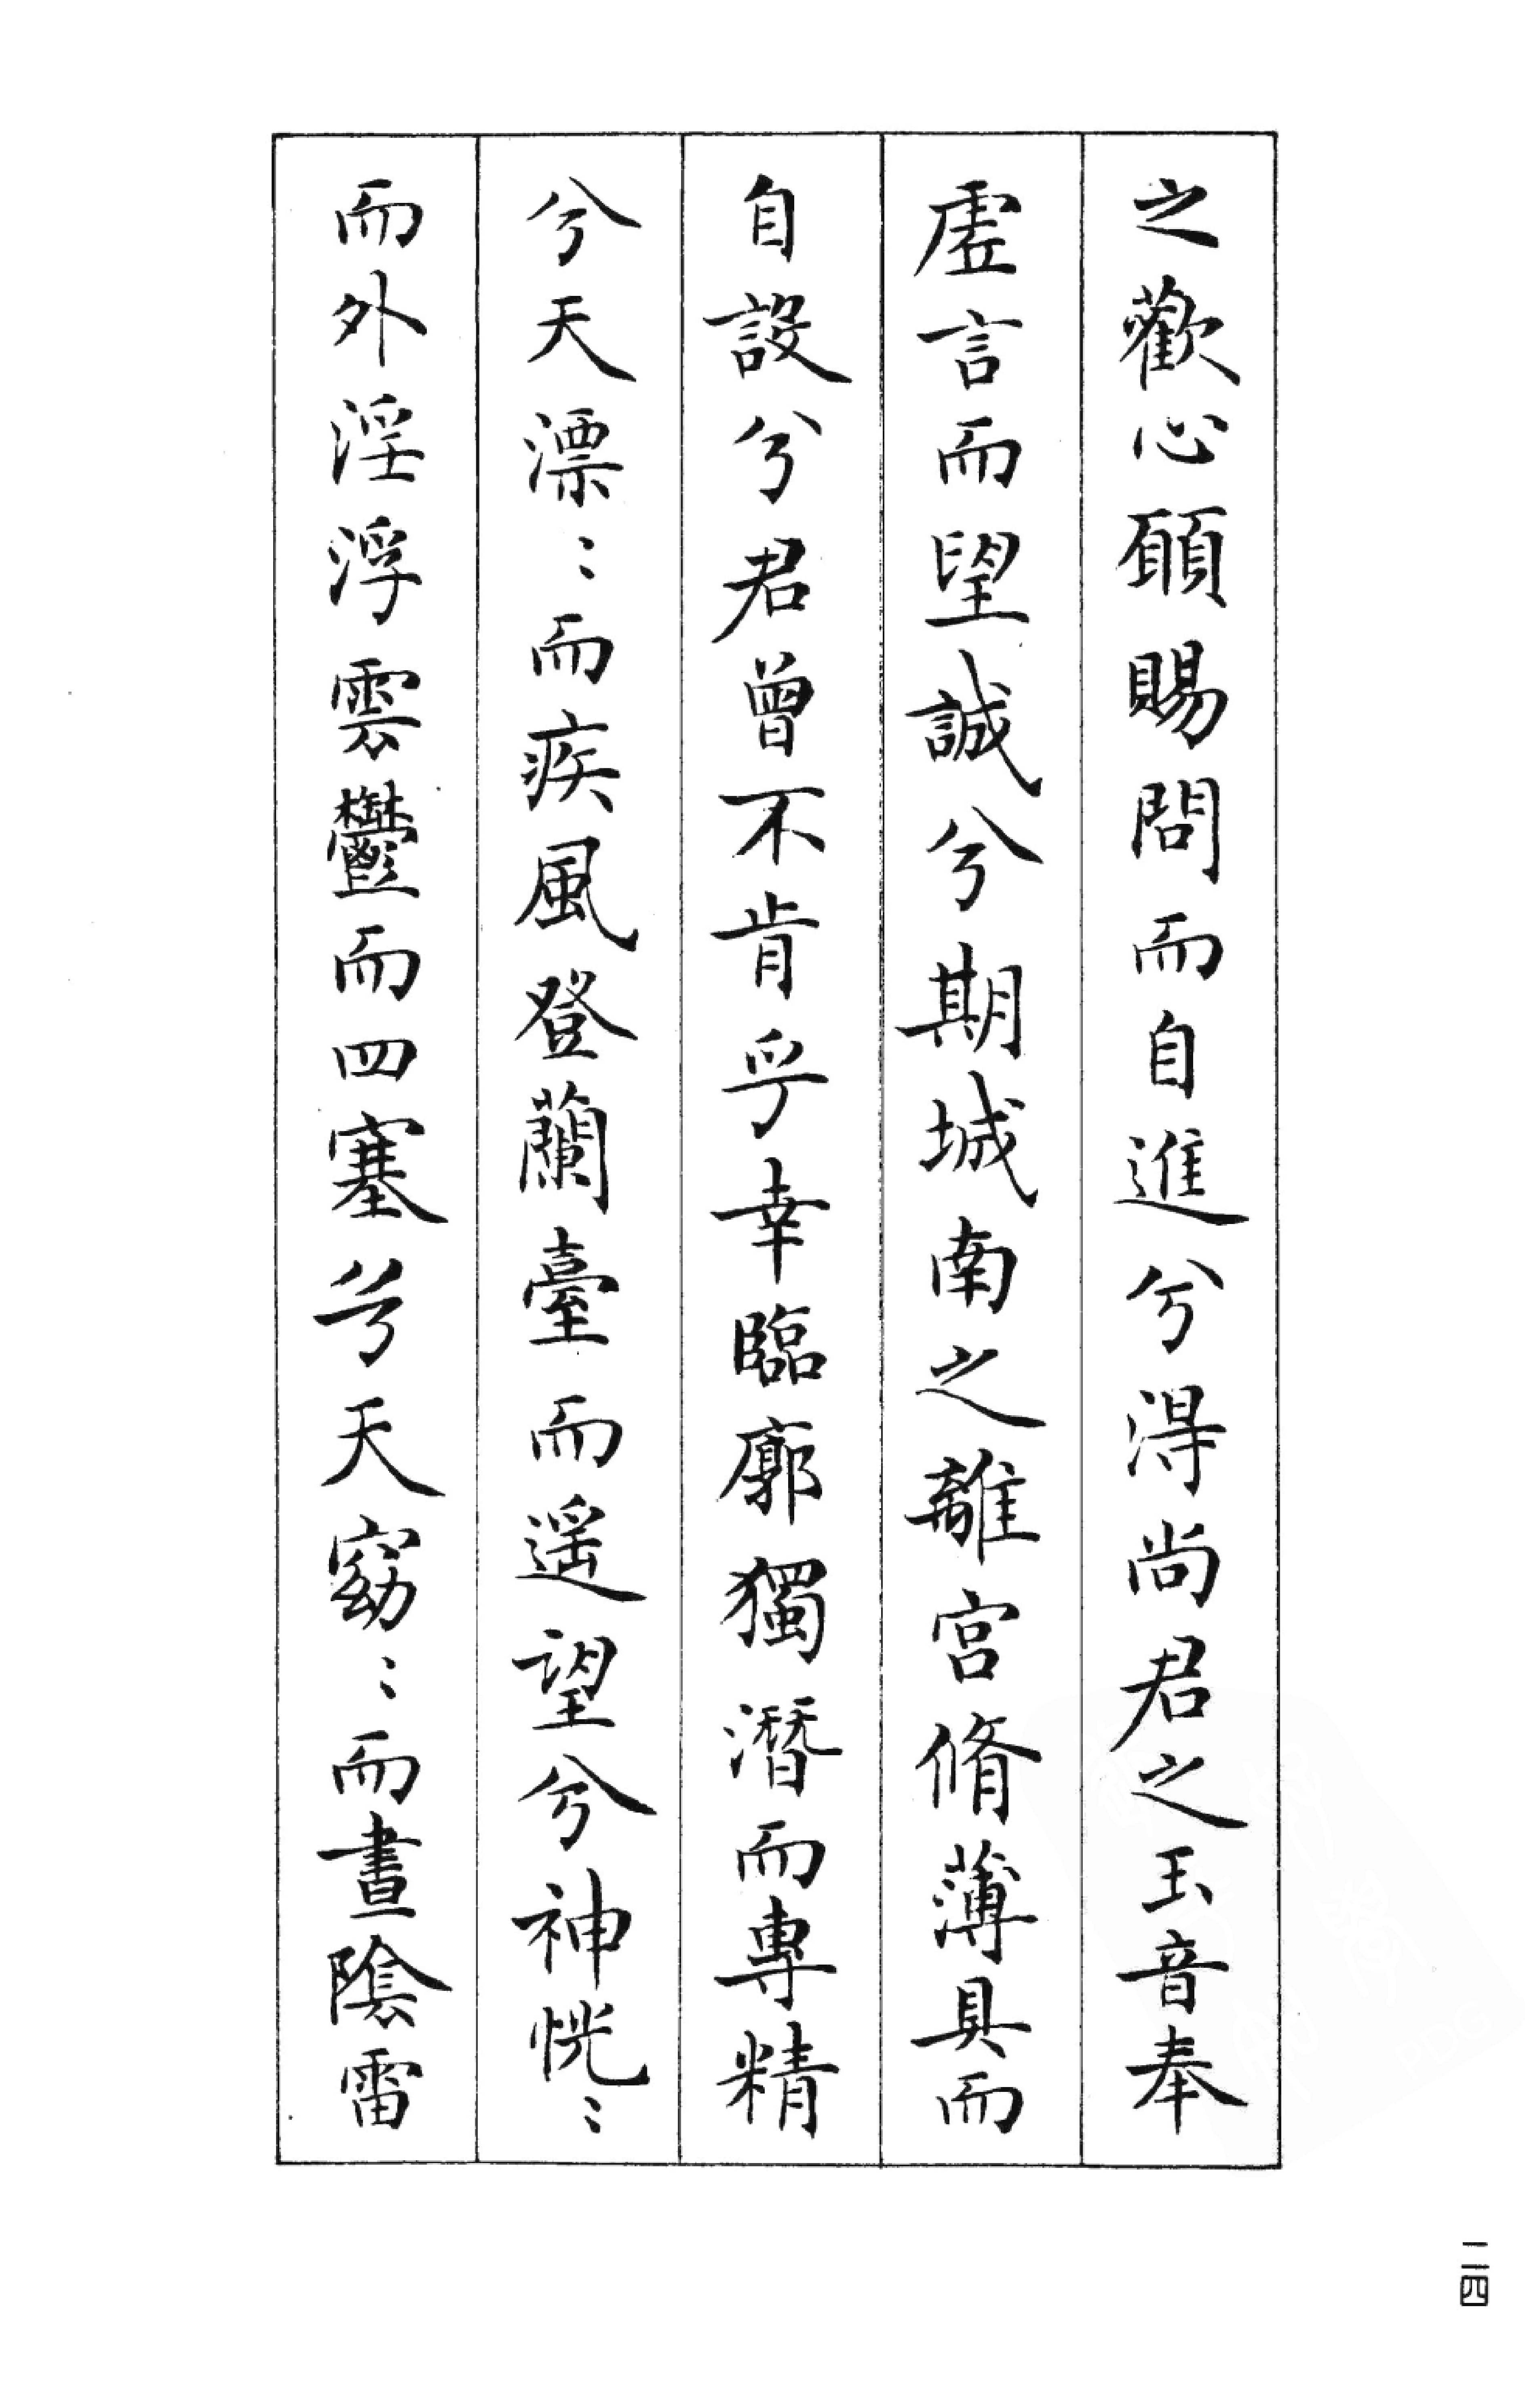 之歡心願賜問而自進兮得尚君之玉音奉
虛言而望誠兮期城南之離宮脩薄具而
自設兮君曾不肯乎幸臨廓獨潛而專精
兮天漂〻而疾風登蘭臺而遥望兮神怳〻
而外淫浮雲鬱而四塞兮天窈〻而晝陰雷
二四